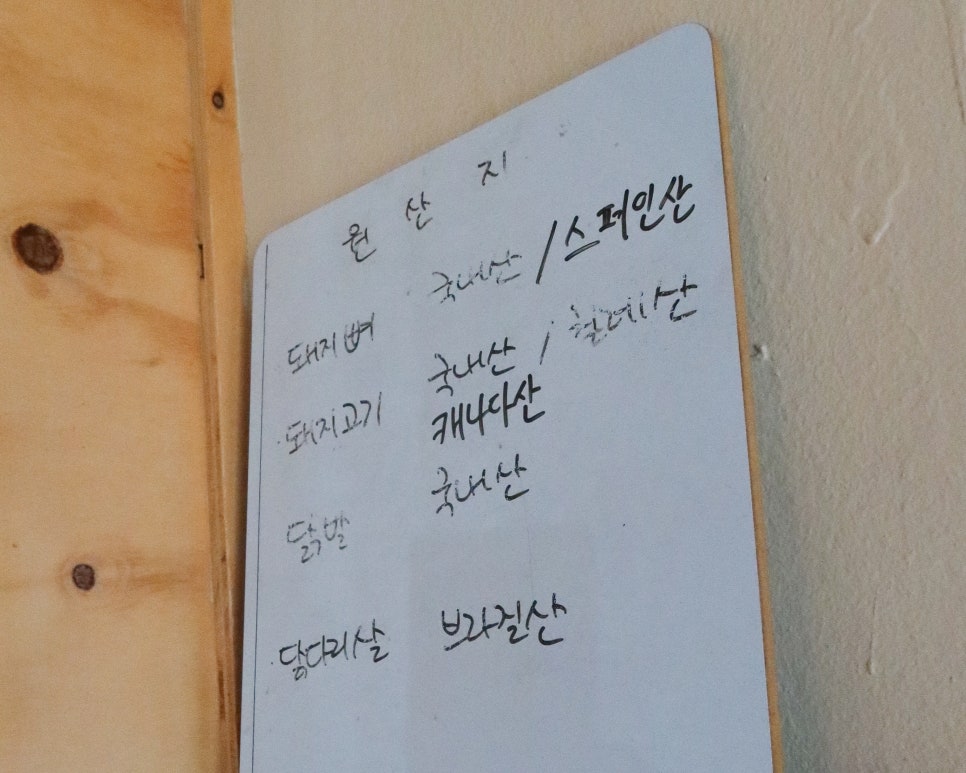 원 산 지
돼지뼈 국내산 / 스페인산
돼지고기 국내산 / 칠레산
캐나다산
닭발 국내산
닭다리살 브라질산